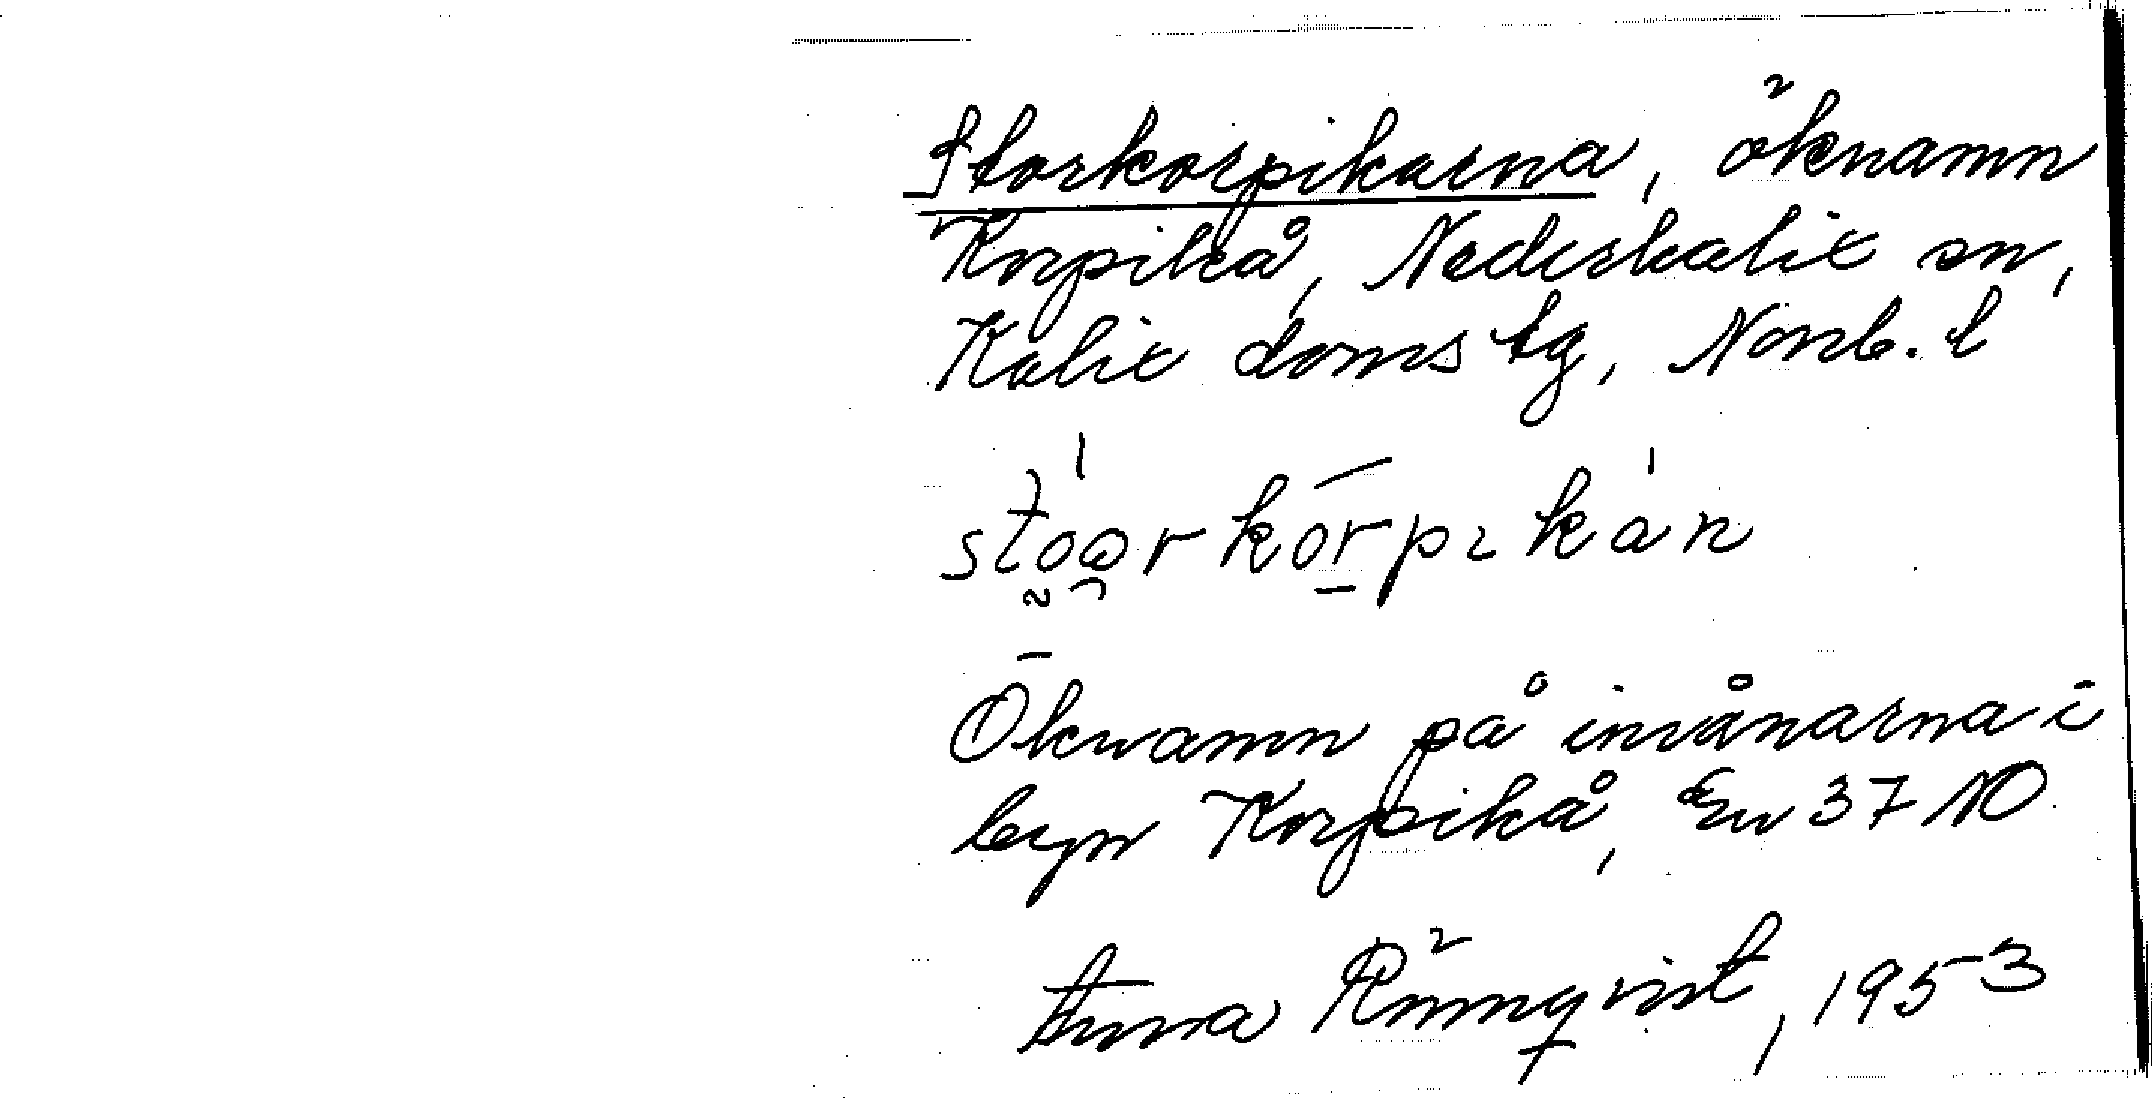 Storkorpikarna, öknamn
Korpikå, Nederkalix sn,
Kalix doms tg, Norrb. l
stoərkorpikan
Öknamn på invånarna i
byn Korpikå, Ew 37 NO
Anna Rönnqvist, 1953